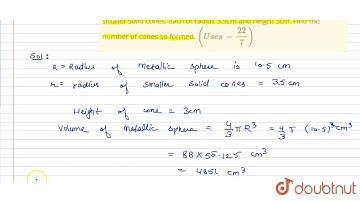 smaller solid cones, each of radius 3.5cm and height 3cm. Find the
number of cones so formed. (Uses = 22/7)
Sol :
R = Radius of metallic sphere is 10.5 cm
r = radius of smaller solid cones = 3.5 cm
Height of cone = 3cm
Volume of metallic sphere = 4/3 π R³ = 4/3 π (10.5)³ cm³
= 88 × 55.125 cm³
= 4851 cm³
doubtnut